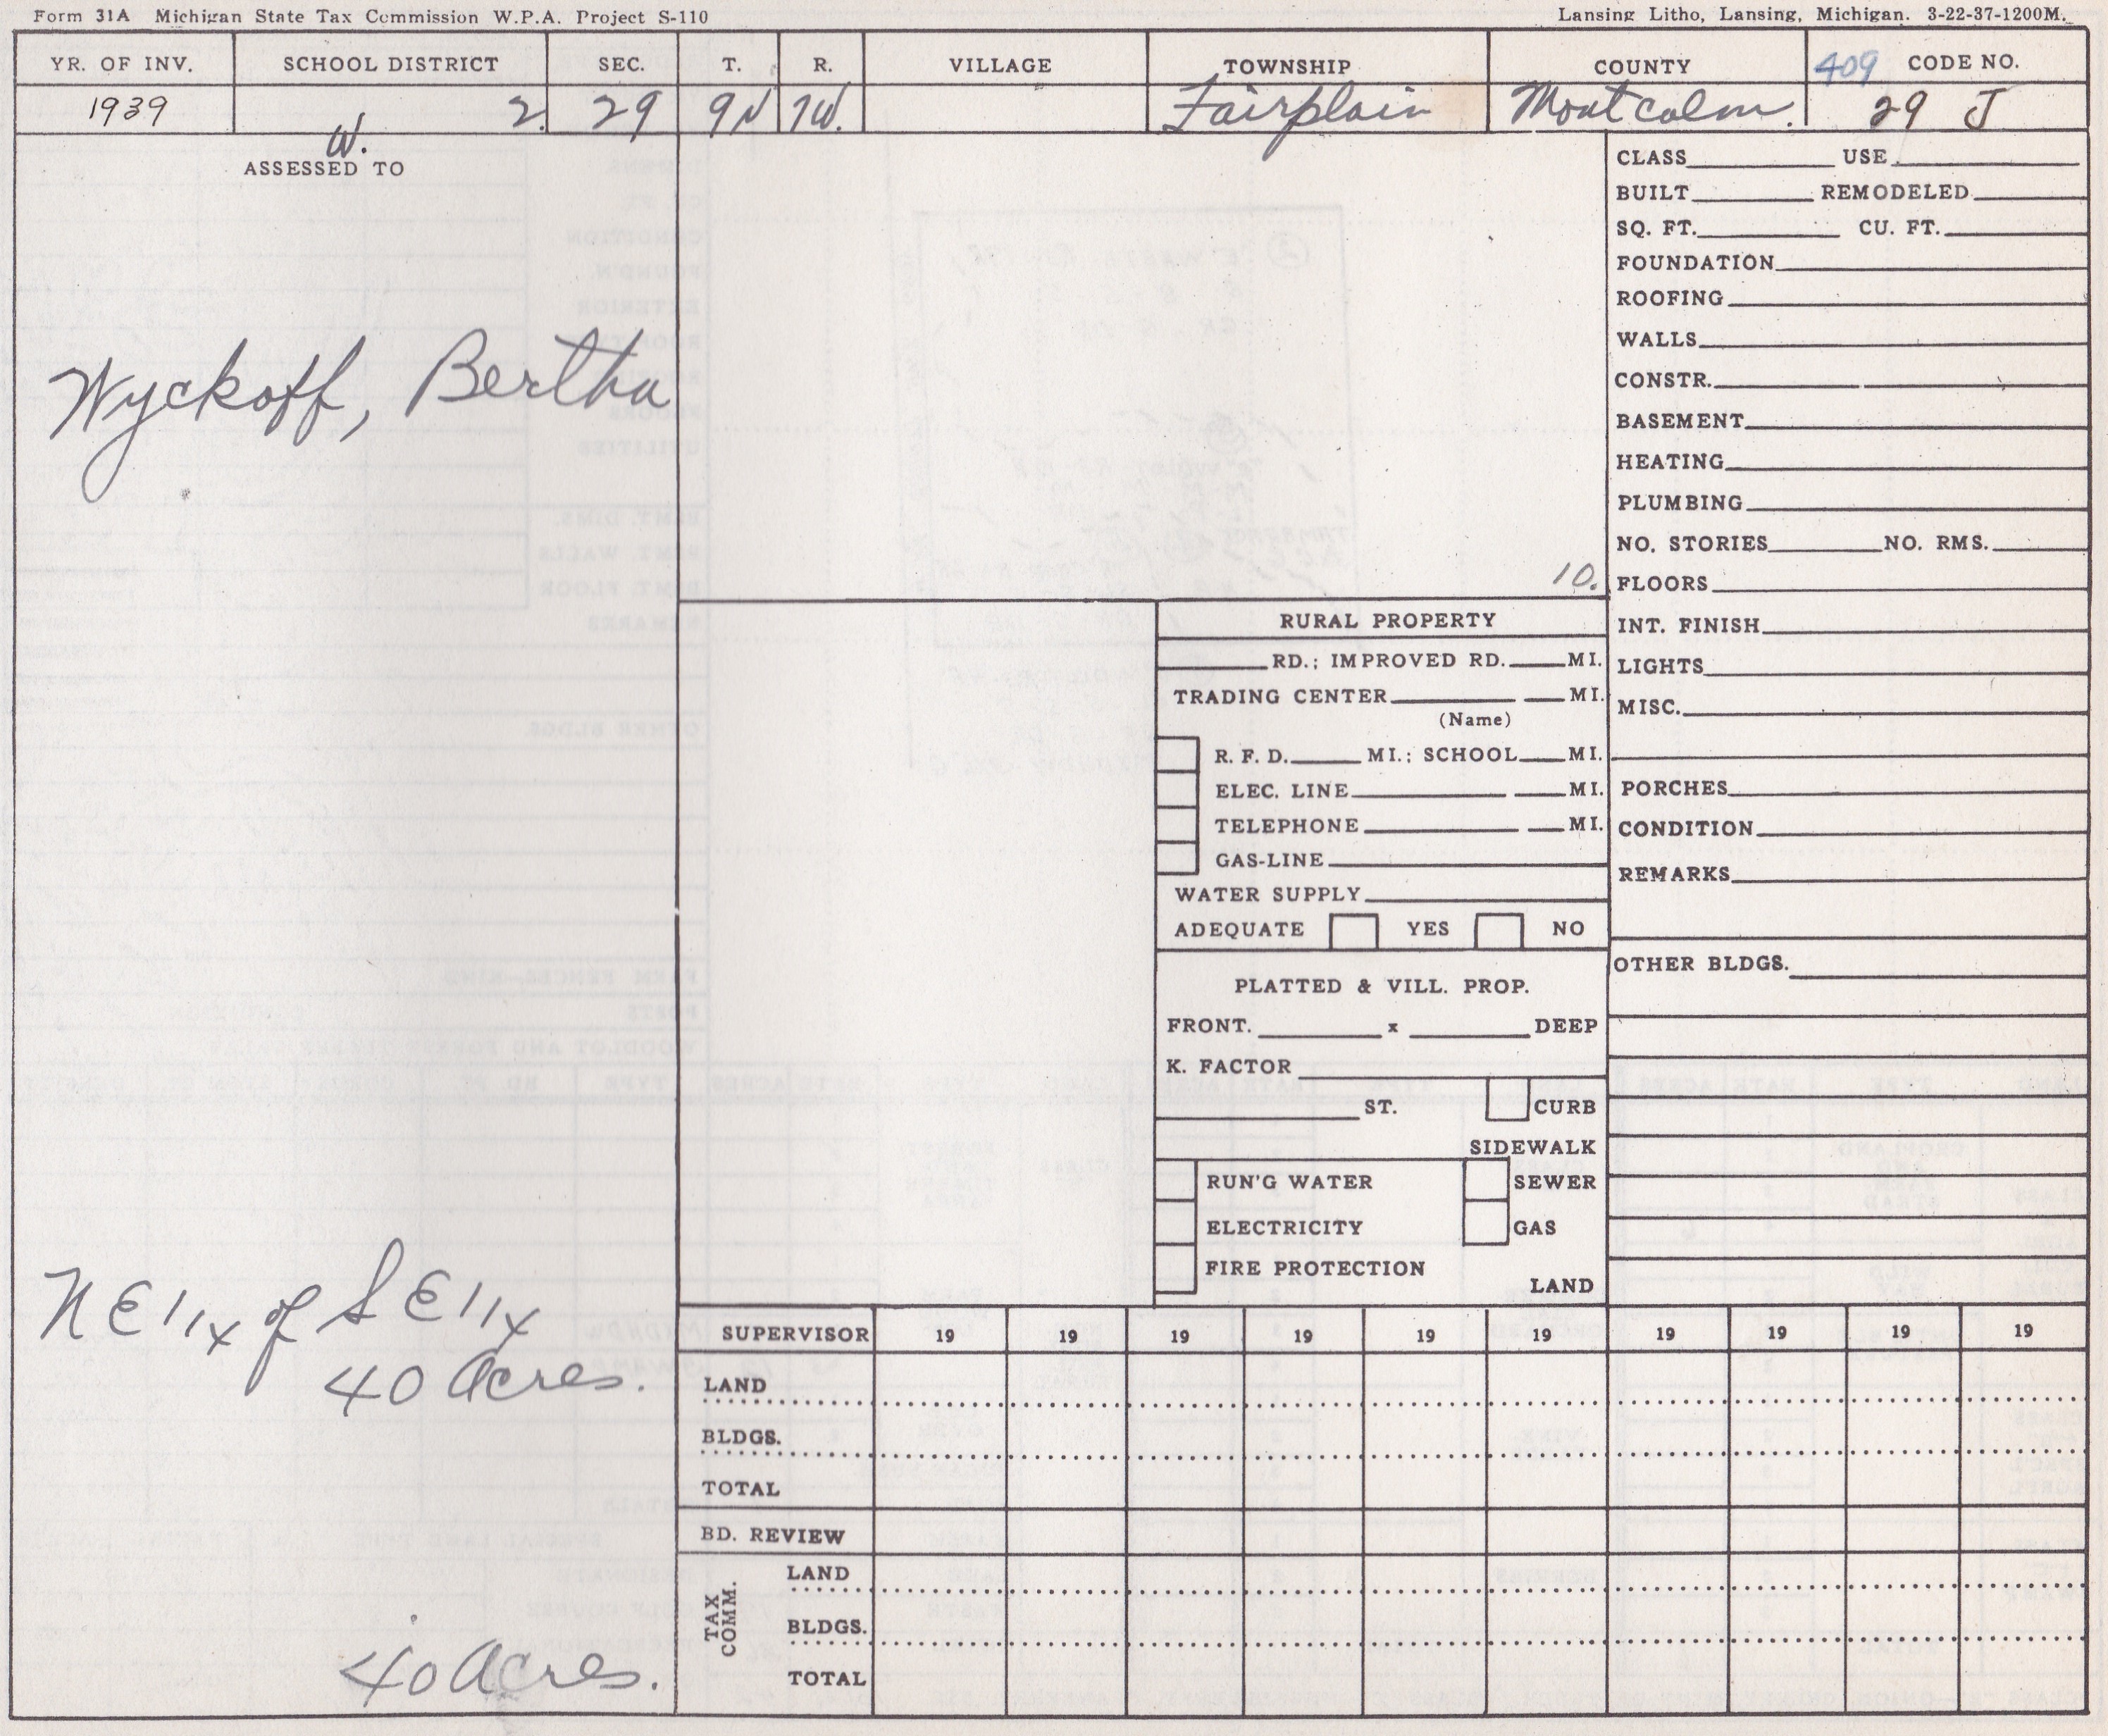 Form 31A Michigan State Tax Commission W.P.A. Project S-110
Lansing Litho, Lansing, Michigan. 3-22-37-1200M.
YR. OF INV. SCHOOL DISTRICT SEC. T. R. VILLAGE TOWNSHIP COUNTY 409 CODE NO.
1939 2. 29 9N 7W. Fairplain Montcalm. 29 J
W.
ASSESSED TO
Wyckoff, Bertha
NE 1/4 of SE 1/4
40 Acres.
40 Acres.
10.
RURAL PROPERTY
RD.; IMPROVED RD. MI.
TRADING CENTER MI.
(Name)
R. F. D. MI.; SCHOOL MI.
ELEC. LINE MI.
TELEPHONE MI.
GAS-LINE
WATER SUPPLY
ADEQUATE YES NO
PLATTED & VILL. PROP.
FRONT. x DEEP
K. FACTOR
ST. CURB
SIDEWALK
RUN'G WATER SEWER
ELECTRICITY GAS
FIRE PROTECTION
LAND
CLASS USE
BUILT REMODELED
SQ. FT. CU. FT.
FOUNDATION
ROOFING
WALLS
CONSTR.
BASEMENT
HEATING
PLUMBING
NO. STORIES NO. RMS.
FLOORS
INT. FINISH
LIGHTS
MISC.
PORCHES
CONDITION
REMARKS
OTHER BLDGS.
SUPERVISOR 19 19 19 19 19 19 19 19 19 19
LAND
BLDGS.
TOTAL
BD. REVIEW
TAX COMM.
LAND
BLDGS.
TOTAL